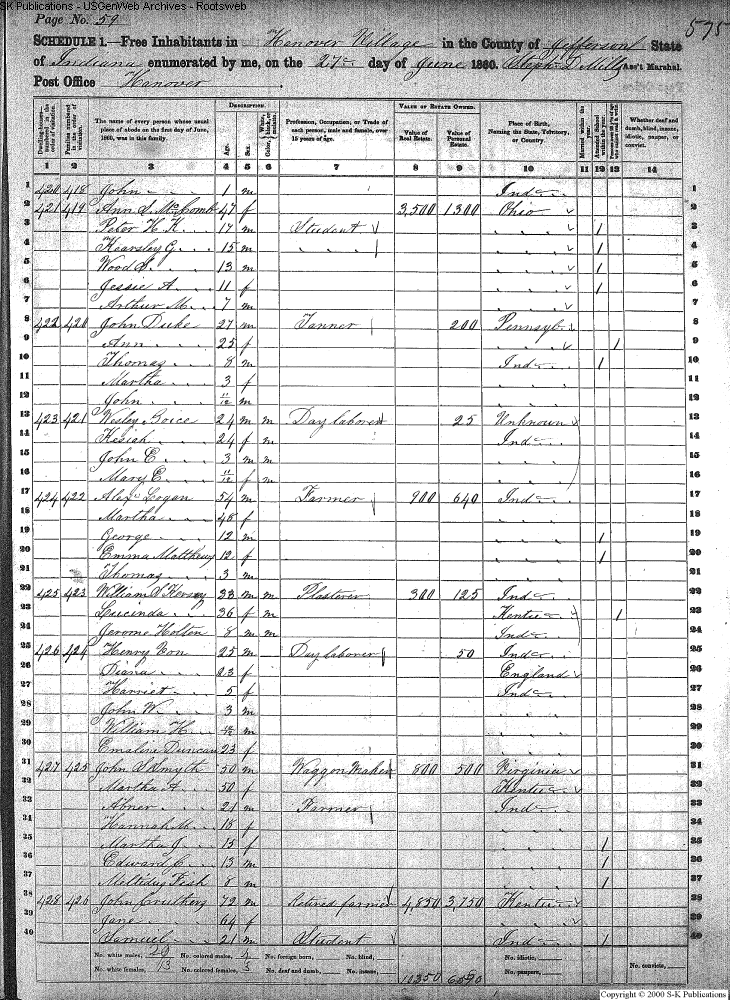 SK Publications - USGenWeb Archives - Rootsweb
Page No. 59
575
SCHEDULE 1.—Free Inhabitants in Hanover Village in the County of Jefferson State
of Indiana enumerated by me, on the 27th day of June 1860. Ass't Marshal.
Post Office Hanover
Dwelling-houses numbered in the order of visitation.
Families numbered in the order of visitation.
The name of every person whose usual place of abode on the first day of June, 1860, was in this family.
DESCRIPTION.
Age.
Sex.
Color, White, black, or mulatto.
Profession, Occupation, or Trade of each person, male and female, over 15 years of age.
VALUE OF ESTATE OWNED.
Value of Real Estate.
Value of Personal Estate.
Place of Birth, Naming the State, Territory, or Country.
Married within the year.
Attended School within the year.
Whether deaf and dumb, blind, insane, idiotic, pauper, or convict.
1 2 3 4 5 6 7 8 9 10 11 12 13 14
1 420 418 John 1 m Ind 1
2 421 419 Ann S. McComb 47 f 3,500 1300 Ohio 2
3 Peter H. K. 17 m Student " / 3
4 Kearsley G. 15 m " " / 4
5 Wood S. 13 m " / 5
6 Jessie A. 11 f " / 6
7 Arthur M. 7 m " 7
8 422 420 John Duke 27 m Tanner 200 Pennsyl 8
9 Ann 25 f " / 9
10 Thomas 8 m Ind / 10
11 Martha 3 f " 11
12 John 11/12 m " 12
13 423 421 Wesley Goice 24 m m Day laborer 25 Unknown 13
14 Kesiah 24 f m Ind 14
15 John E. 3 m m " 15
16 Mary E. 11/12 f m " 16
17 424 422 Alex Logan 54 m Farmer 900 640 Ind 17
18 Martha 48 f " 18
19 George 12 m " / 19
20 Emma Matthews 12 f " / 20
21 Thomas 3 m " 21
22 425 423 William S Kersey 33 m m Plasterer 300 125 Ind 22
23 Lucinda 36 f m Kentu / 23
24 Jerome Holton 8 m m Ind 24
25 426 424 Henry Con 25 m Day laborer 50 Ind 25
26 Diana 23 f England 26
27 Harriet 5 f Ind 27
28 John W. 3 m " 28
29 William H. m " 29
30 Emaline Duncan 23 f " 30
31 427 425 John S Smyth 50 m Waggon Maker 800 500 Virginia 31
32 Martha A. 50 f Kentu 32
33 Abner 21 m Farmer Ind 33
Hannah M. 18 f "
35 Martha J. 15 f " / 35
36 Edward C. 13 m " / 36
37 Fish 8 m " / 37
38 428 426 John Cruthers 72 m Retired farmer 4,850 3,750 Kentu 38
39 Jane 64 f " 39
40 Samuel 21 m Student Ind / 40
No. white males, 20 No. colored males, 4 No. foreign born, No. blind, No. idiotic, No. convicts,
No. white females, 13 No. colored females, 3 No. deaf and dumb, No. insane, 10350 6590 No. paupers,
Copyright © 2000 S-K Publications